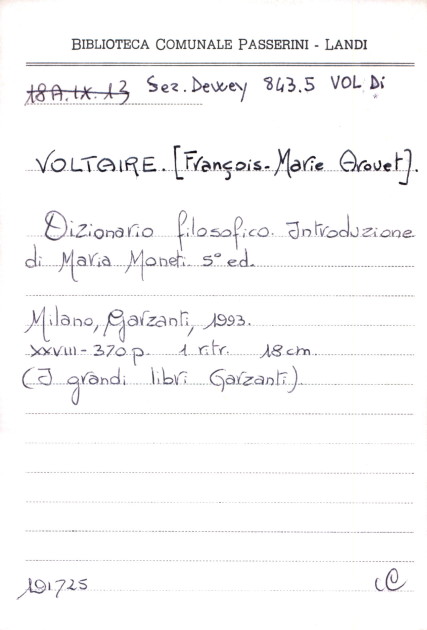 BIBLIOTECA COMUNALE PASSERINI - LANDI
18A.IX.13 Sez. Dewey 843.5 VOL Di
VOLTAIRE. [François-Marie Arouet].
Dizionario filosofico. Introduzione
di Maria Moneti. 5° ed.
Milano, Garzanti, 1993.
XXVIII-370 p. 1 ritr. 18 cm.
(I grandi libri Garzanti).
191725